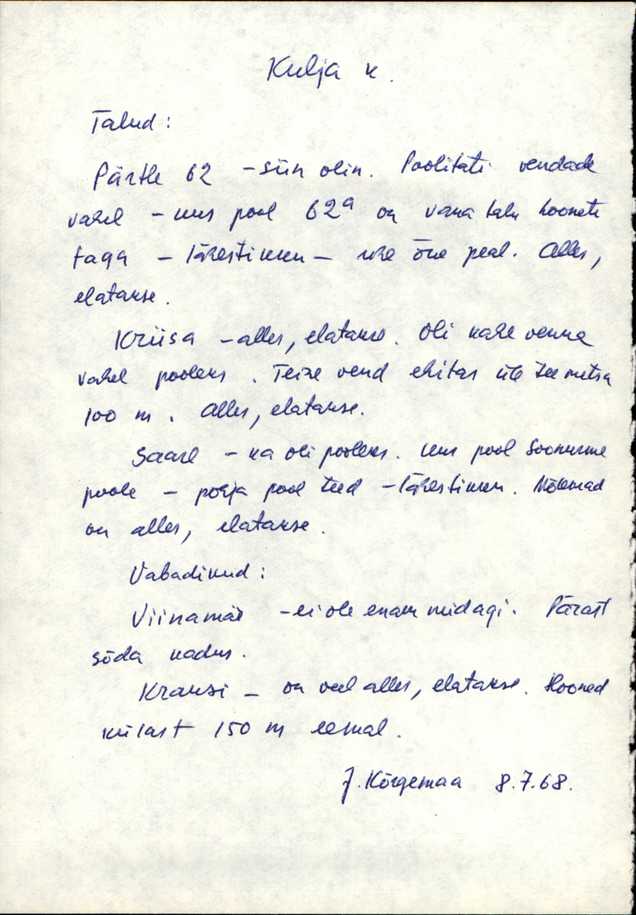 Kulja k.
Talud:
Pärtle 62 – siin olin. Poolitati vendade
vahel – uus pool 62ª on vana talu hoonete
taga – lähestikku – ühe õue peal. Alles,
elatakse.
Kriisa – alles, elatakse. Oli kahe venna
vahel pooleks. Teine vend ehitas üle tee metsa
100 m. Alles, elatakse.
Saare – ka oli pooleks. Uus pool Soonurme
poole – põhja pool teed – lähestikku. Mõlemad
on alles, elatakse.
Vabadikud:
Viinamäe – ei ole enam midagi. Pärast
sõda kadus.
Krausi – on veel alles, elatakse. Hooned
külast 150 m eemal.
J. Kõrgemaa 8.7.68.